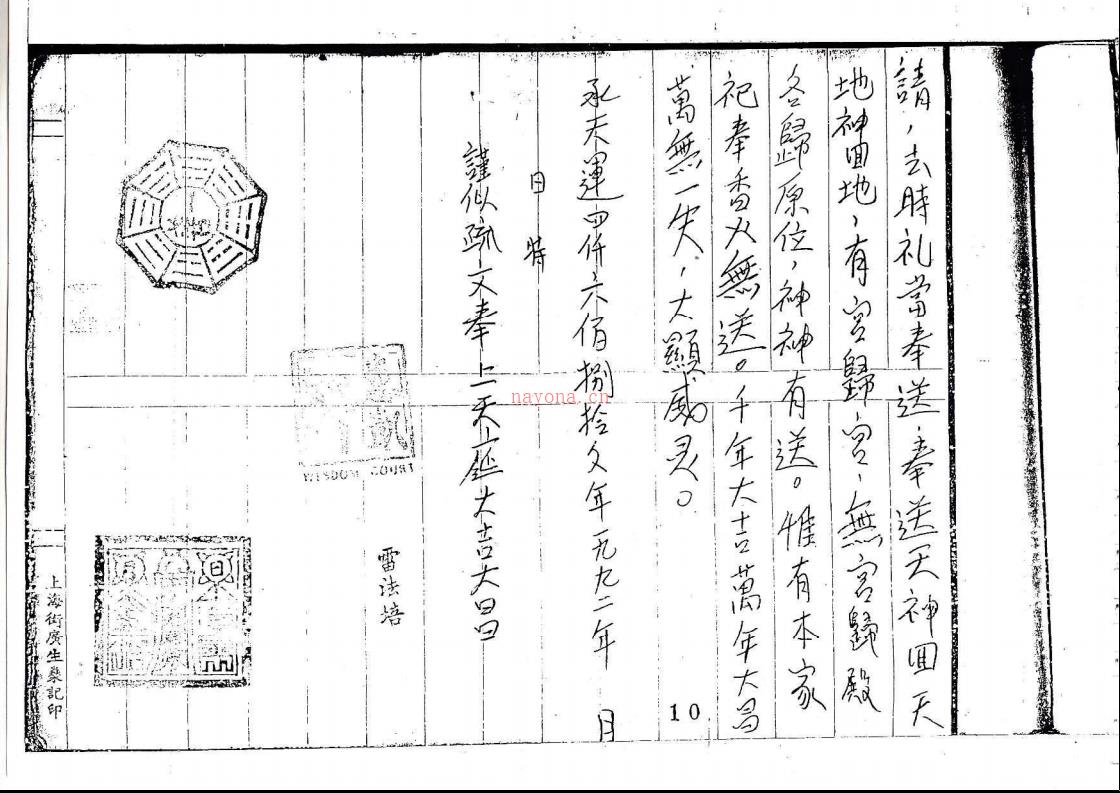 請，去時礼當奉送，奉送天神回天
地神回地，有宮歸宮，無宮歸殿
各歸原位，神神有送。惟有本家
祀奉香火無送。千年大吉萬年大昌
萬無一失，大顯威灵。
承天運四仟六佰捌拾文年一九九二年 月
日 時
謹似疏文奉上天庭大吉大昌
雷法培
10
WISDOM COURT
上海街廣生藥記印
nayona.cn